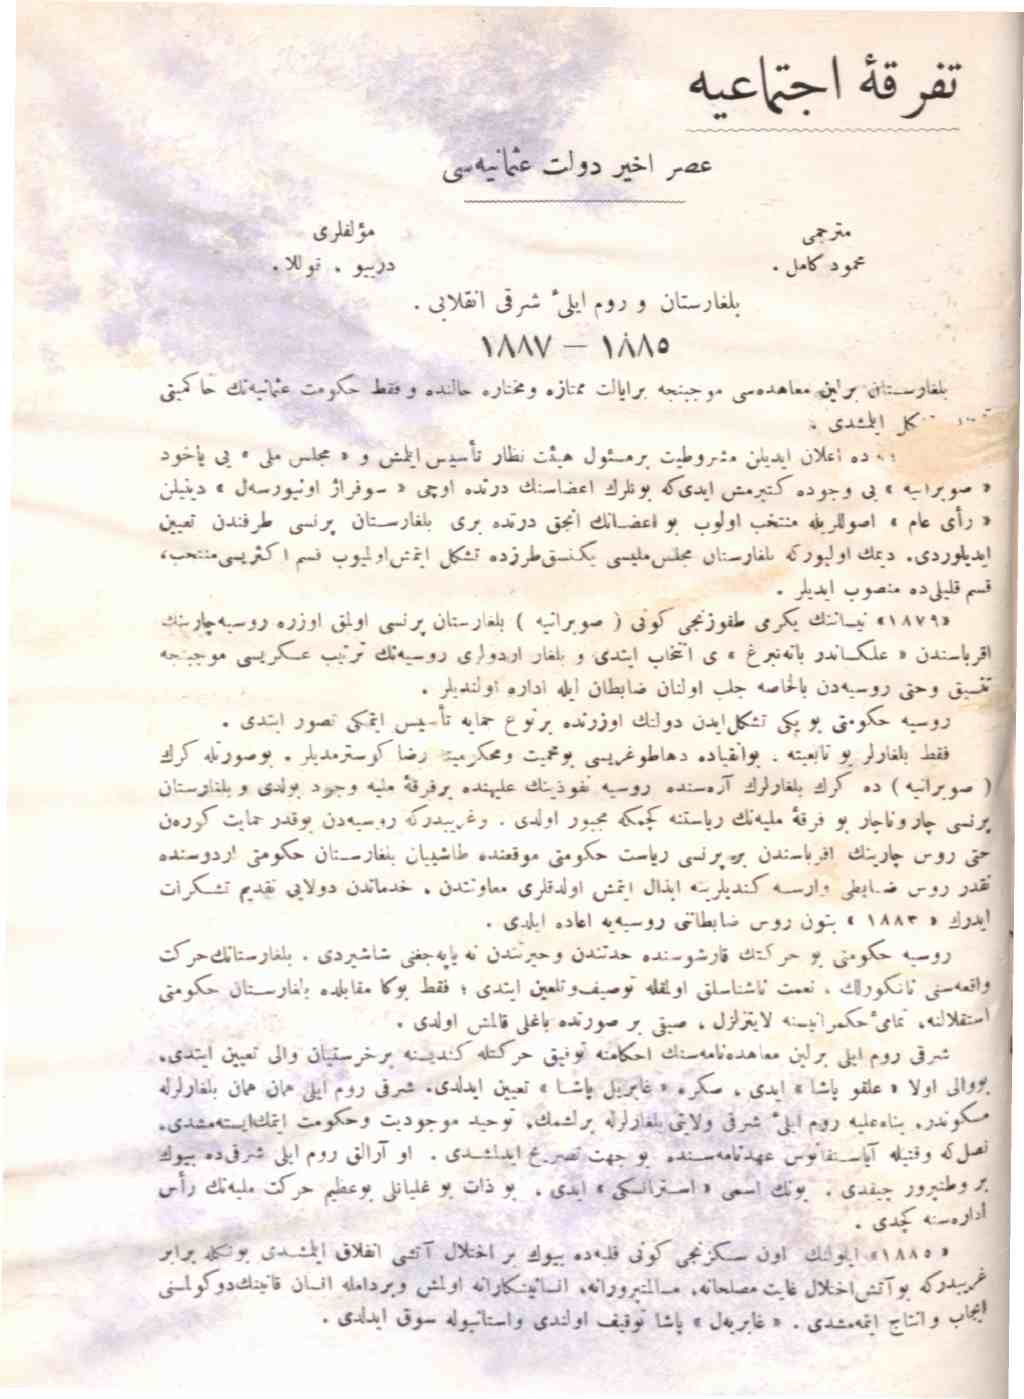 تفرقهٔ اجتماعیه
عصر اخیر دولت عثمانیه‌سی
مترجمی
محمود کامل .
مؤلفلری
دریو . نوللا .
بلغارستان و روم ایلیٔ شرقی انقلابی .
۱۸۸۵ — ۱۸۸۷
بلغارستان برلین معاهده‌سی موجبنجه برایالت ممتازه ومختاره حالنده و فقط حکومت عثمانیه‌نك حاکمیتی
ایلمشدی .
ده اعلان ایدیلن مشروطیت برمسئول هیئت نظار تأسیس ایلمش و « مجلس ملی » یی یاخود
« صوبرانیه » یی وجوده کتیرمش ایدی‌که بونلرك اعضاسنك درتده اوچی « سوفراژ اونیورسه‌ل » دینیلن
« رأی عام » اصوللریله منتخب اولوب بو اعضانك انجق درتده بری بلغارستان پرنسی طرفندن تعیین
ایدیلوردی. دیمك اولیورکه بلغارستان مجلس‌ملیسی یکنسق‌طرزده تشکل ایتمش‌اولمیوب قسم اکثریسی‌منتخب،
قسم قلیلی‌ده منصوب ایدیلر .
«۱۸۷۹» نیساننك یکرمی طقوزنجی کونی ( صوبرانیه ) بلغارستان پرنسی اولمق اوزره روسیه‌چارینك
اقرباسندن « علکساندر باته‌نبرغ » ی انتخاب ایتدی و بلغار اردولری روسیه‌نك ترتیب عسکریسی موجبنجه
تنسیق وحتی روسیه‌دن بالخاصه جلب اولنان ضابطان ایله اداره اولندیلر .
روسیه حکومتی بو یکی تشکل‌ایدن دولتك اوزرنده برنوع حمایه تأسیس ایتمکی تصور ایتدی .
فقط بلغارلر بو تابعیته . بوانقیاده دهاطوغریسی بومحمیت ومحکومیته رضا کوسترمدیلر . بوصورتله کرك
( صوبرانیه ) ده کرك بلغارلرك آره‌سنده روسیه نفوذینك علیهنده برفرقهٔ ملیه وجود بولدی و بلغارستان
پرنسی چار وناچار بو فرقهٔ ملیه‌نك ریاستنه کچمکه مجبور اولدی . وغریبدرکه روسیه‌دن بوقدر حمایت کوره‌ن
حتی روس چارینك اقرباسندن بر پرنسی ریاست حکومتی موقعنده طاشییان بلغارستان حکومتی اردوسنده
نقدر روس ضابطی وارسه کندیلرینه ابذال ایتمش اولدقلری معاونتدن . خدماتدن دولایی تقدیم تشکرات
ایدرك « ۱۸۸۳ » بتون روس ضابطاتنی روسیه‌یه اعاده ایلدی .
روسیه حکومتی بو حرکتك قارشوسنده حدتندن وحیرتندن نه یاپه‌جغنی شاشیردی . بلغارستانك‌حرکت
واقعه‌سنی نانکورلك . نعمت ناشناسلق اولمقله توصیف‌وتلعین ایتدی ؛ فقط بوکا مقابلده بلغارستان حکومتی
استقلالنه، تمامیٔ حکمرانیسنه لایتزلزل . صیقی بر صورتده باغلی قالمش اولدی .
شرقی روم ایلی برلین معاهده‌نامه‌سنك احکامنه توفیق حرکتله کندیسنه برخرستیان والی تعیین ایتدی.
بووالی اولا « علقو پاشا » ایدی . سکره « غابریل پاشا » تعیین ایدلدی. شرقی روم ایلی همان همان بلغارلرله
مسکوندر. بناءعلیه روم ایلیٔ شرقی ولایتی بلغارلرله برلشمك. توحید موجودیت وحکومت ایتمك‌ایسته‌مشدی.
نصل‌که وقتیله آیاستفانوس عهدنامه‌سنده بو جهت تصریح ایدلمشدی . او آرالق روم ایلی شرقی‌ده بیوك
بر وطنپرور چیقدی . بونك اسمی « استرانسکی » ایدی . بو ذات بو غلیانلی بوعظیم حرکت ملیه‌نك رأس
اداره‌سنه کچدی .
«۱۸۸۵» ایلولنك اون سکزنجی کونی فلبه‌ده بیوك بر اختلال آتشی انفلاق ایلمشدی بونکله برابر
غریبدرکه بو آتش‌اختلال غایت مصلحانه. مسالمتپرورانه. انسانیتکارانه اولمش وبردامله انسان قانینك‌دوکولمسنی
ایجاب وانتاج ایتمه‌مشدی . « غابریه‌ل » پاشا توقیف اولندی واستانبوله سوق ایدلدی .